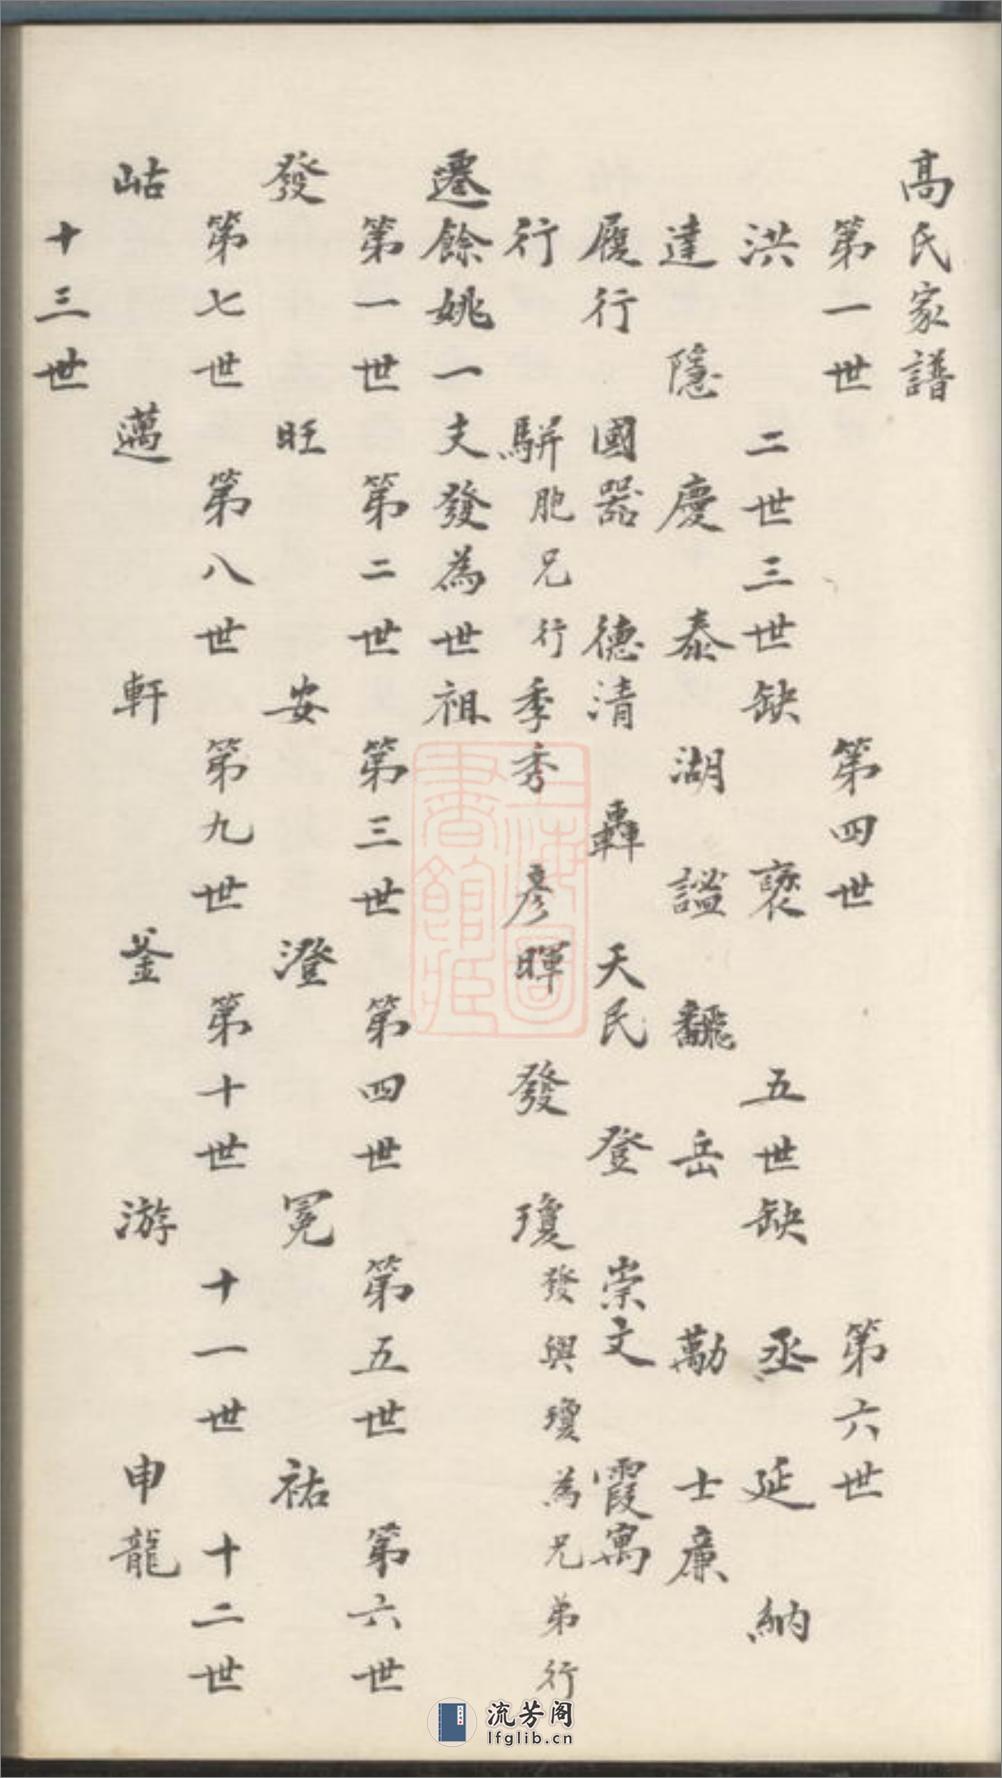 高氏家譜
第一世 第四世 第六世
洪 二世三世缺 褒 五世缺 丞 延 納
達 隱 慶 泰 湖 謐 翻 岳 勱 士廉
履行 國器 德清 轟 天民 登 崇文 霞寓
行 駢胞兄行 季秀 彥暉 發 瓊發與瓊為兄弟行
遷餘姚一支發為世祖
第一世 第二世 第三世 第四世 第五世 第六世
發 旺 安 澄 冕 祐
第七世 第八世 第九世 第十世 十一世 十二世
岵 邁 軒 釜 游 申龍
十三世
上海圖書館藏
流芳阁
lfglib.cn